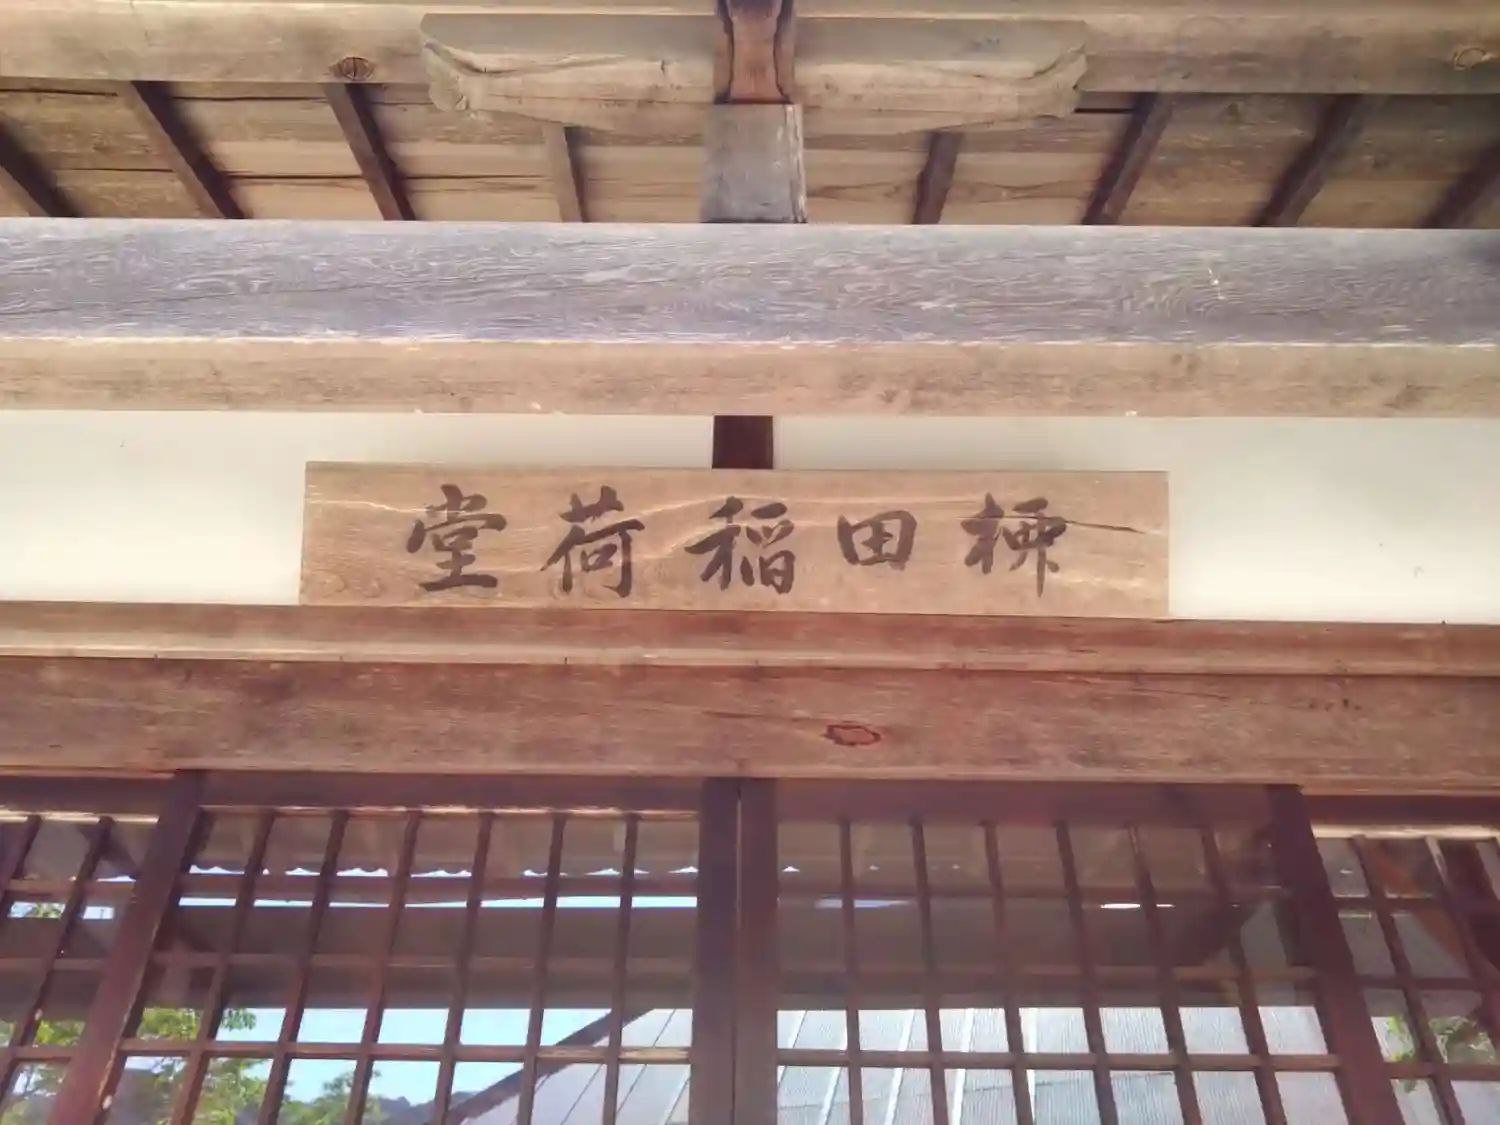 柿田稲荷堂